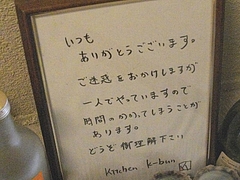 いつも
ありがとうございます。
ご迷惑をおかけしますが
一人でやっていますので
時間のかかってしまうことが
あります。
どうぞ御理解下さい
Kitchen K-bun